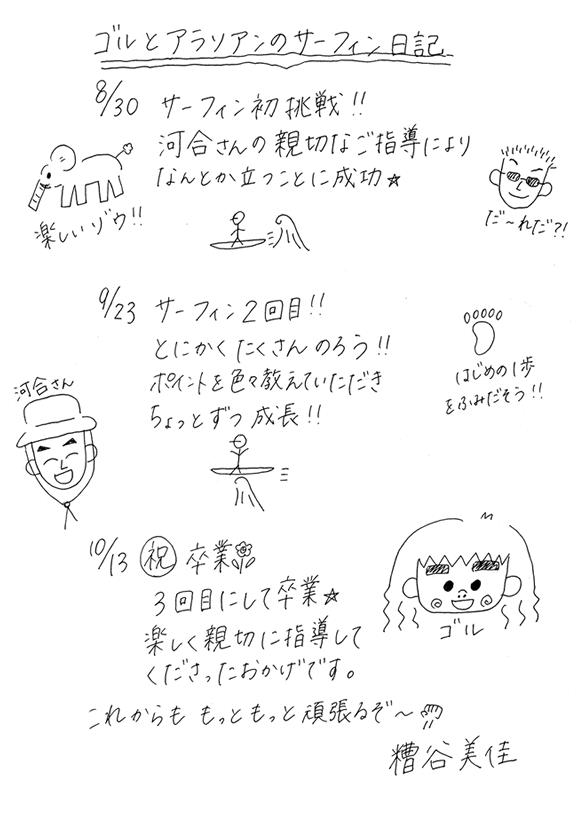 ゴルとアラソアンのサーフィン日記
8/30 サーフィン初挑戦!!
河合さんの親切なご指導により
なんとか立つことに成功☆
楽しいゾウ!!
だ〜れだ?!
9/23 サーフィン2回目!!
とにかくたくさんのろう!!
ポイントを色々教えていただき
ちょっとずつ成長!!
はじめの1歩
をふみだそう!!
河合さん
10/13 ㊗ 卒業
3回目にして卒業☆
楽しく親切に指導して
くださったおかげです。
ゴル
これからももっともっと頑張るぞ〜
糟谷美佳